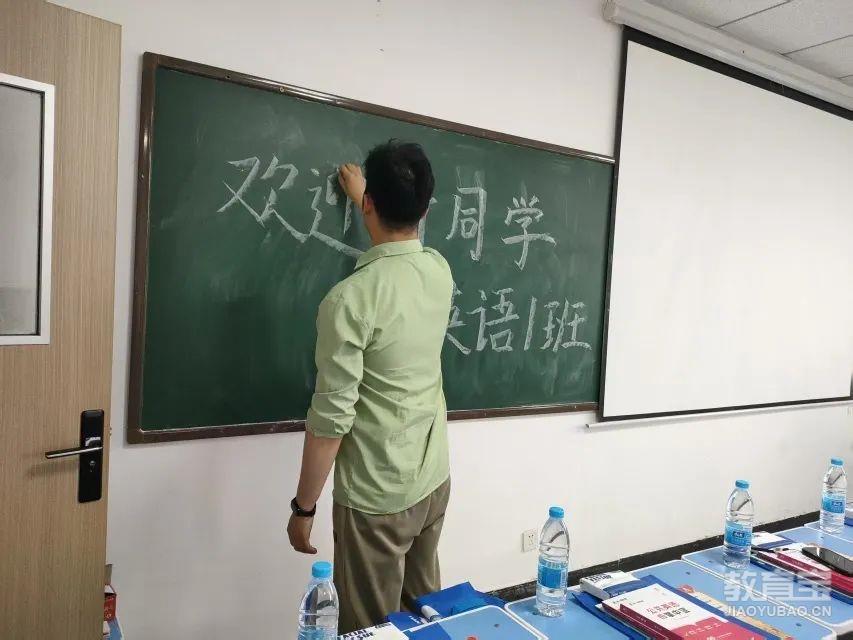 欢迎 同学
英语1班
教育宝
JIAOYUBAO.CN